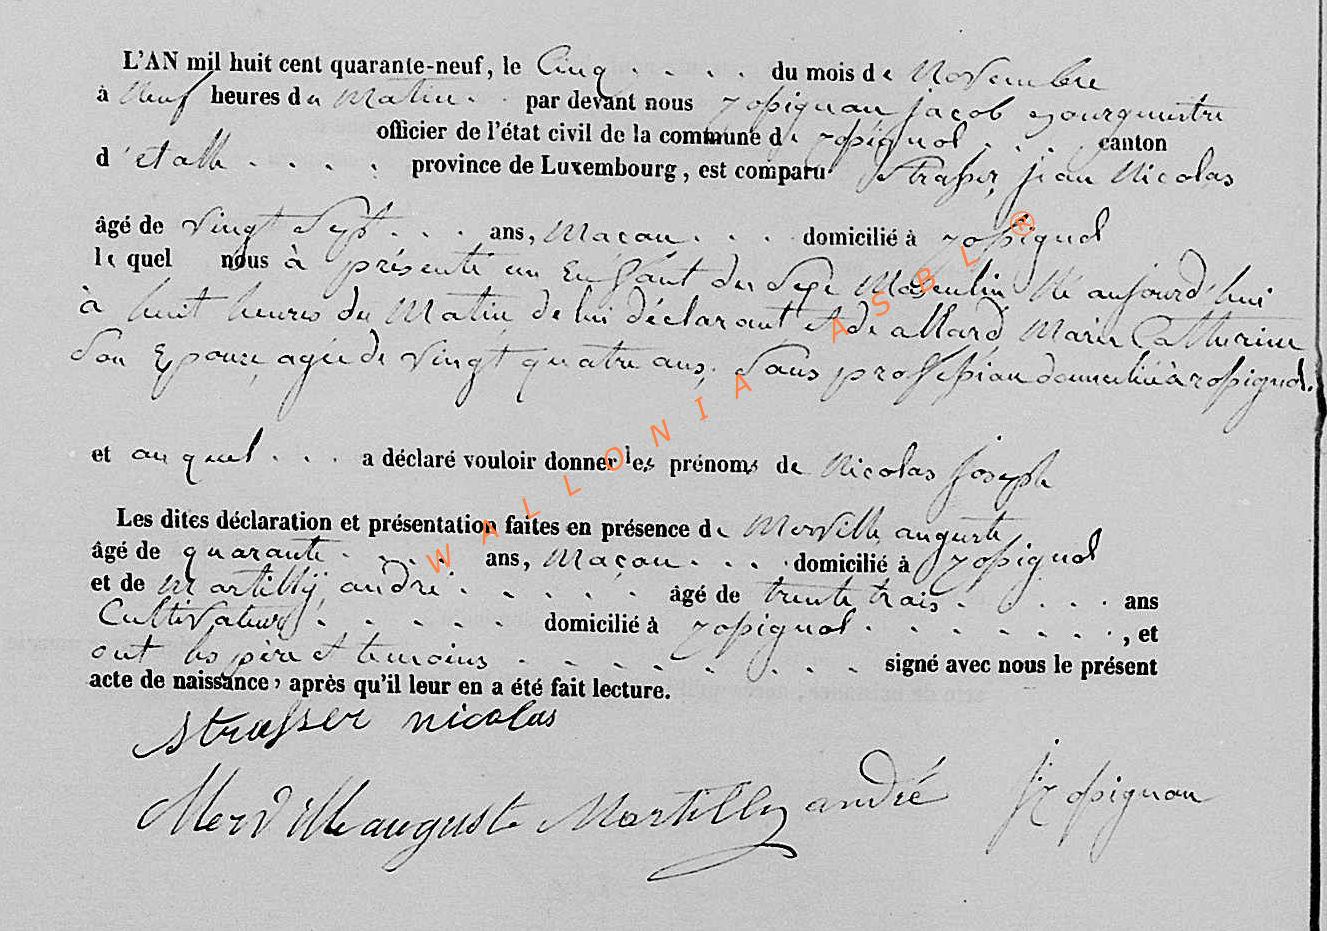 L'AN mil huit cent quarante-neuf, le Cinq . . . . du mois de Novembre
à Neuf heures du Matin . . par devant nous rossignon jacob Bourguestre
officier de l'état civil de la commune de rossignol . . . . canton
d'étalle . . . . province de Luxembourg, est comparu Strasser, jean Nicolas
âgé de vingt Sept . . . ans, Maçon . . . domicilié à rossignol
le quel nous à présenté un Enfant du Sexe Masculin Né aujourd'hui
à huit heures du Matin, de lui déclarant et de allard Marie Catherine
Son Epouze, agée de vingt quatre ans, Sans proffession domiciliée à rossignol.
et auquel . . . a déclaré vouloir donner les prénoms de Nicolas Joseph
Les dites déclaration et présentation faites en présence de Merville auguste
âgé de quarante . . . . ans, Maçon . . . . domicilié à rossignol
et de Martilly andré . . . . . âgé de trente trois . . . . ans
Cultivateurs . . . . . domicilié à rossignol . . . . . . . , et
ont les père et temoins . . . . . . . . signé avec nous le présent
acte de naissance, après qu'il leur en a été fait lecture.
strasser nicolas
Merville auguste Martilly andré J rossignon
WALLONIA ASBL ®